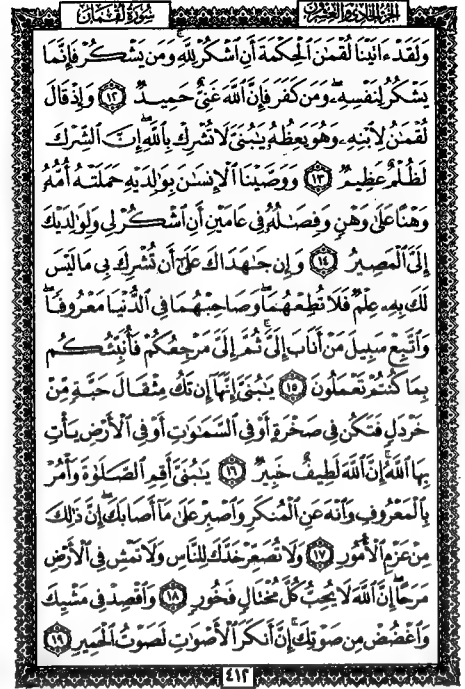 الجزء الحادي والعشرون
سُورَةُ لُقْمَانَ
وَلَقَدْ ءَاتَيْنَا لُقْمَٰنَ ٱلْحِكْمَةَ أَنِ ٱشْكُرْ لِلَّهِ وَمَن يَشْكُرْ فَإِنَّمَا
يَشْكُرُ لِنَفْسِهِۦ وَمَن كَفَرَ فَإِنَّ ٱللَّهَ غَنِىٌّ حَمِيدٌ ١٢ وَإِذْ قَالَ
لُقْمَٰنُ لِٱبْنِهِۦ وَهُوَ يَعِظُهُۥ يَٰبُنَىَّ لَا تُشْرِكْ بِٱللَّهِ إِنَّ ٱلشِّرْكَ
لَظُلْمٌ عَظِيمٌ ١٣ وَوَصَّيْنَا ٱلْإِنسَٰنَ بِوَٰلِدَيْهِ حَمَلَتْهُ أُمُّهُۥ
وَهْنًا عَلَىٰ وَهْنٍ وَفِصَٰلُهُۥ فِى عَامَيْنِ أَنِ ٱشْكُرْ لِى وَلِوَٰلِدَيْكَ
إِلَىَّ ٱلْمَصِيرُ ١٤ وَإِن جَٰهَدَاكَ عَلَىٰٓ أَن تُشْرِكَ بِى مَا لَيْسَ
لَكَ بِهِۦ عِلْمٌ فَلَا تُطِعْهُمَا وَصَاحِبْهُمَا فِى ٱلدُّنْيَا مَعْرُوفًا
وَٱتَّبِعْ سَبِيلَ مَنْ أَنَابَ إِلَىَّ ثُمَّ إِلَىَّ مَرْجِعُكُمْ فَأُنَبِّئُكُم
بِمَا كُنتُمْ تَعْمَلُونَ ١٥ يَٰبُنَىَّ إِنَّهَآ إِن تَكُ مِثْقَالَ حَبَّةٍ مِّنْ
خَرْدَلٍ فَتَكُن فِى صَخْرَةٍ أَوْ فِى ٱلسَّمَٰوَٰتِ أَوْ فِى ٱلْأَرْضِ يَأْتِ
بِهَا ٱللَّهُ إِنَّ ٱللَّهَ لَطِيفٌ خَبِيرٌ ١٦ يَٰبُنَىَّ أَقِمِ ٱلصَّلَوٰةَ وَأْمُرْ
بِٱلْمَعْرُوفِ وَٱنْهَ عَنِ ٱلْمُنكَرِ وَٱصْبِرْ عَلَىٰ مَآ أَصَابَكَ إِنَّ ذَٰلِكَ
مِنْ عَزْمِ ٱلْأُمُورِ ١٧ وَلَا تُصَعِّرْ خَدَّكَ لِلنَّاسِ وَلَا تَمْشِ فِى ٱلْأَرْضِ
مَرَحًا إِنَّ ٱللَّهَ لَا يُحِبُّ كُلَّ مُخْتَالٍ فَخُورٍ ١٨ وَٱقْصِدْ فِى مَشْيِكَ
وَٱغْضُضْ مِن صَوْتِكَ إِنَّ أَنكَرَ ٱلْأَصْوَٰتِ لَصَوْتُ ٱلْحَمِيرِ ١٩
٤١٢